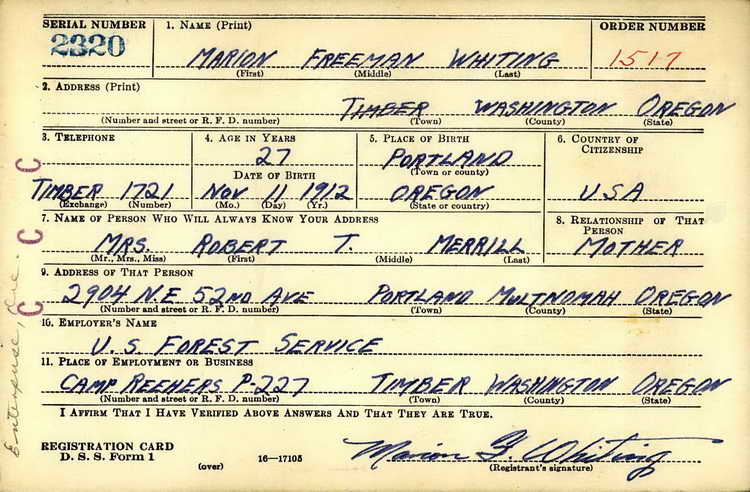 SERIAL NUMBER 1. NAME (Print) ORDER NUMBER
2320 MARION FREEMAN WHITING 1517
(First) (Middle) (Last)
2. ADDRESS (Print)
TIMBER WASHINGTON OREGON
(Number and street or R. F. D. number) (Town) (County) (State)
3. TELEPHONE 4. AGE IN YEARS 5. PLACE OF BIRTH 6. COUNTRY OF CITIZENSHIP
27 PORTLAND
(Town or county)
DATE OF BIRTH
TIMBER 1721 NOV 11 1912 OREGON USA
(Exchange) (Number) (Mo.) (Day) (Yr.) (State or country)
7. NAME OF PERSON WHO WILL ALWAYS KNOW YOUR ADDRESS 8. RELATIONSHIP OF THAT PERSON
MRS. ROBERT T. MERRILL MOTHER
(Mr., Mrs., Miss) (First) (Middle) (Last)
9. ADDRESS OF THAT PERSON
2904 N.E 52ND AVE PORTLAND MULTNOMAH OREGON
(Number and street or R. F. D. number) (Town) (County) (State)
10. EMPLOYER'S NAME
U.S FOREST SERVICE
11. PLACE OF EMPLOYMENT OR BUSINESS
CAMP REEHERS P-227 TIMBER WASHINGTON OREGON
(Number and street or R. F. D. number) (Town) (County) (State)
I AFFIRM THAT I HAVE VERIFIED ABOVE ANSWERS AND THAT THEY ARE TRUE.
REGISTRATION CARD
D. S. S. Form 1 (over) 16—17105 Marion F. Whiting
(Registrant's signature)
C C C